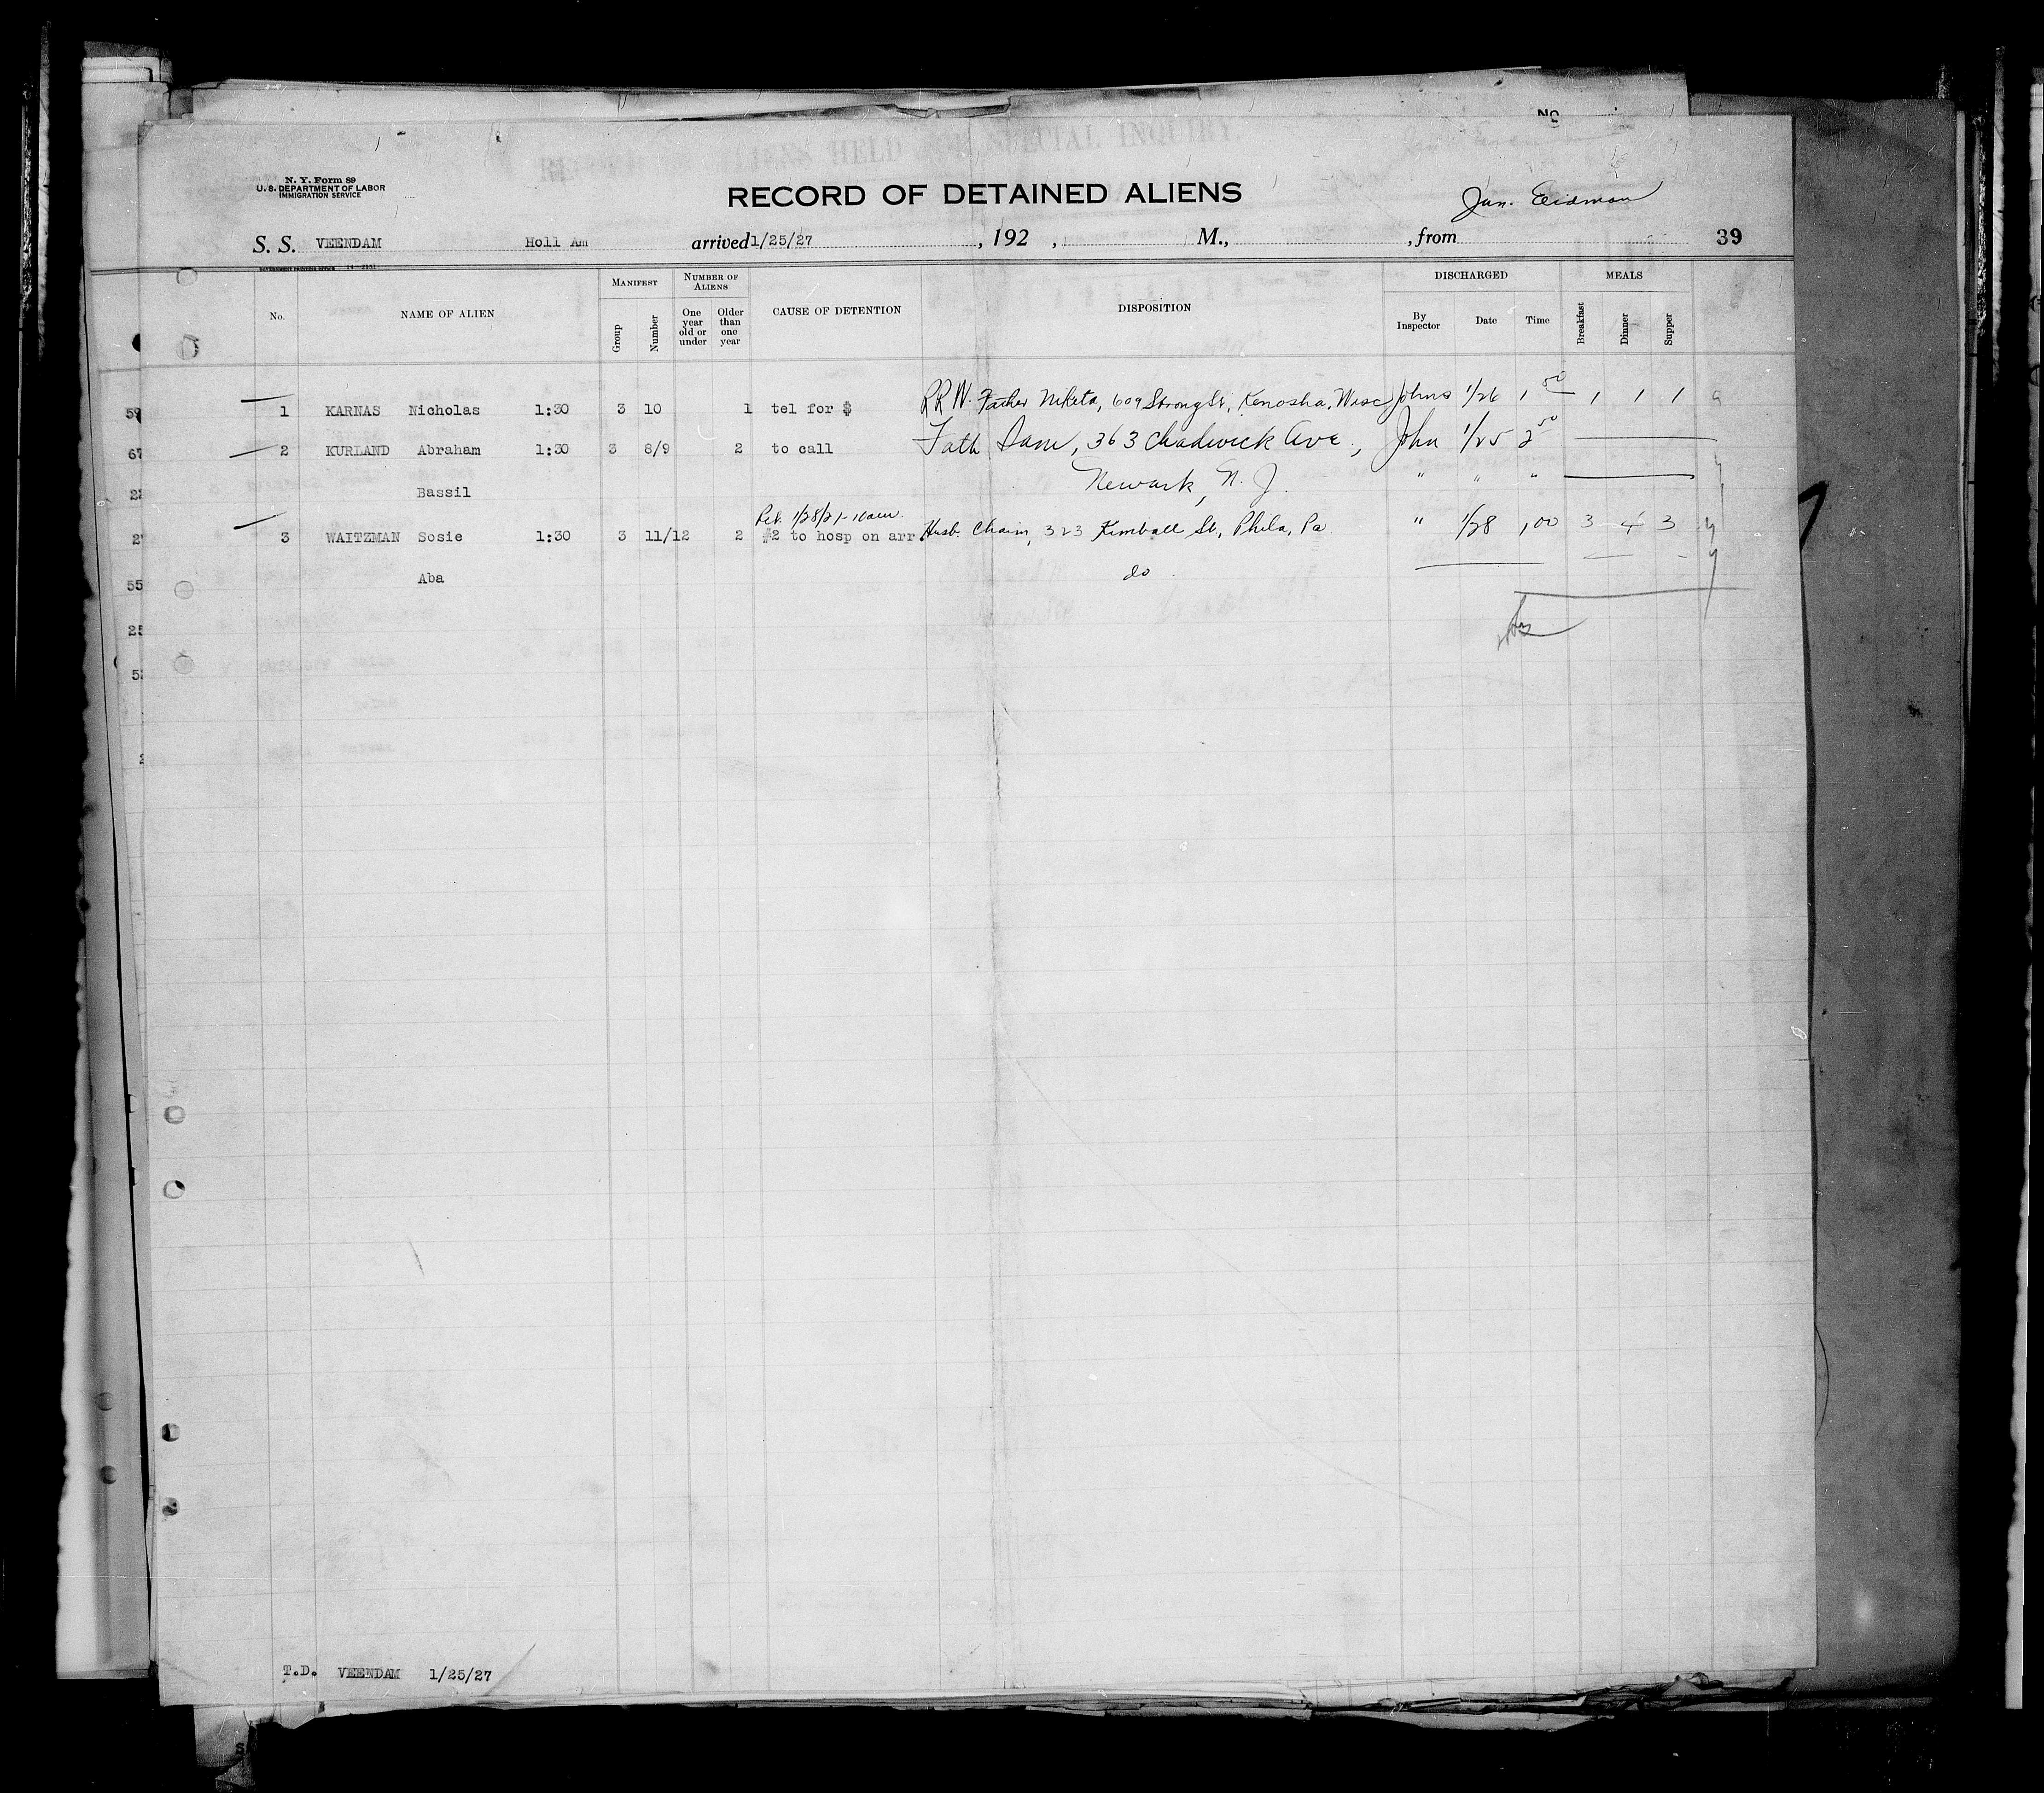 No
N. Y. Form 89
U. S. DEPARTMENT OF LABOR
IMMIGRATION SERVICE
RECORD OF DETAINED ALIENS
Jan. Eidman
S. S. VEENDAM Holl Am arrived 1/25/27, 192 , M., , from 39
No. NAME OF ALIEN MANIFEST Group Number NUMBER OF ALIENS One year old or under Older than one year CAUSE OF DETENTION DISPOSITION DISCHARGED By Inspector Date Time MEALS Breakfast Dinner Supper
1 KARNAS Nicholas 1:30 3 10 1 tel for $ RRW. Father Niketa, 609 Strong St, Kenosha, Wisc Johns 1/26 1 50 1 1 1
2 KURLAND Abraham 1:30 3 8/9 2 to call Fath Sam, 363 Chadwick Ave, John 1/25 2 50
Bassil Newark, N. J. " " "
Ret. 1/28/27-10am
3 WAITZMAN Sosie 1:30 3 11/12 2 #2 to hosp on arr. Husb. Chaim, 323 Kimball St, Phila, Pa " 1/28 1 00 3 4 3
Aba do
T.D. VEENDAM 1/25/27